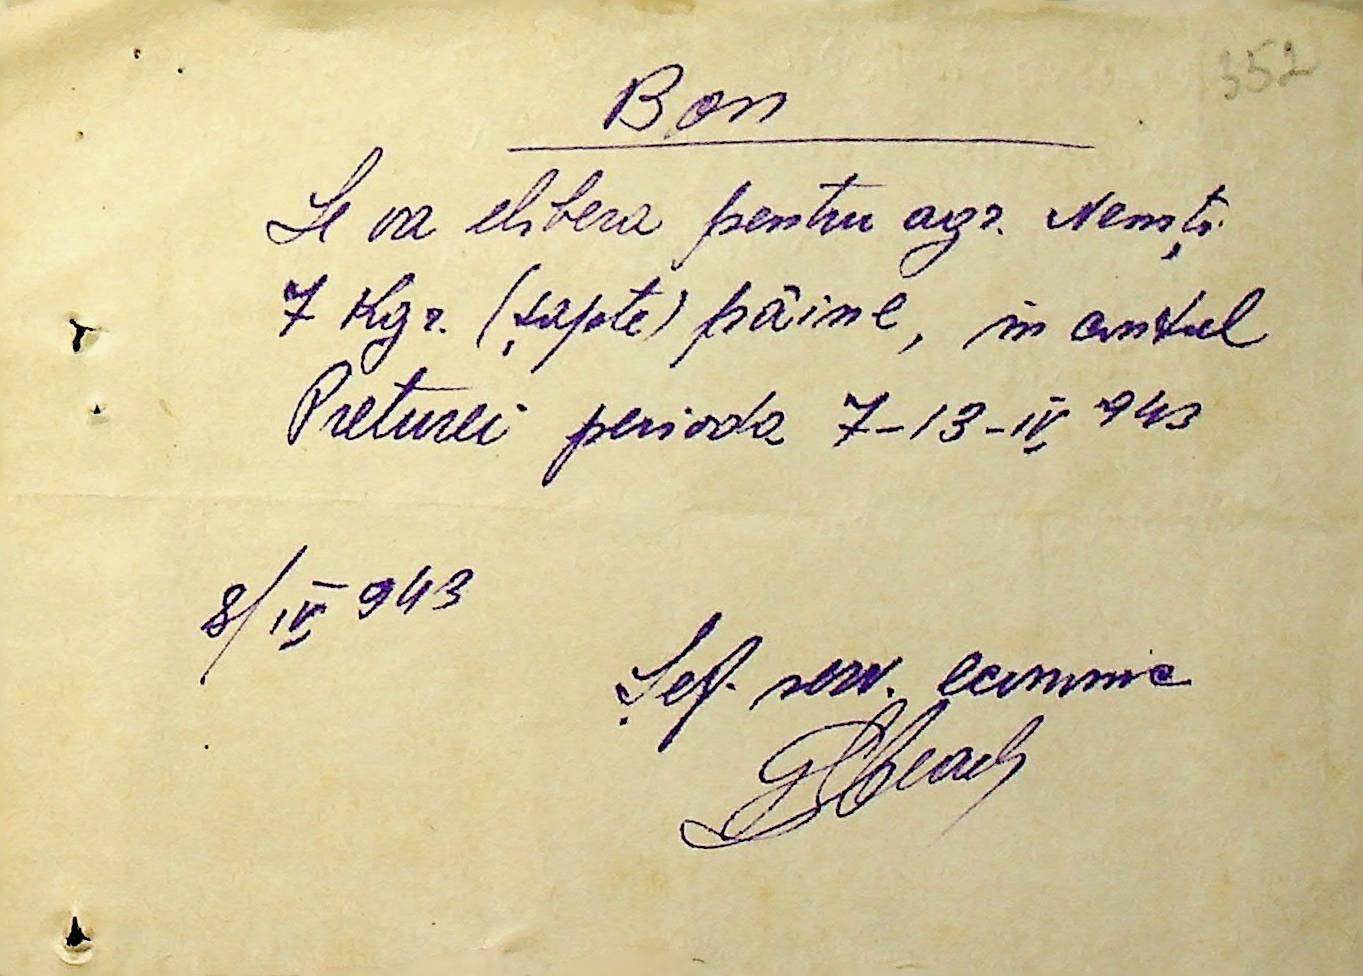 352
Bon
Se va elibera pentru agr. Nemți
7 Kgr. (șapte) pâine, în contul
Preturei perioda 7-13-IV 943
8/IV 943
Șef. serv. economic